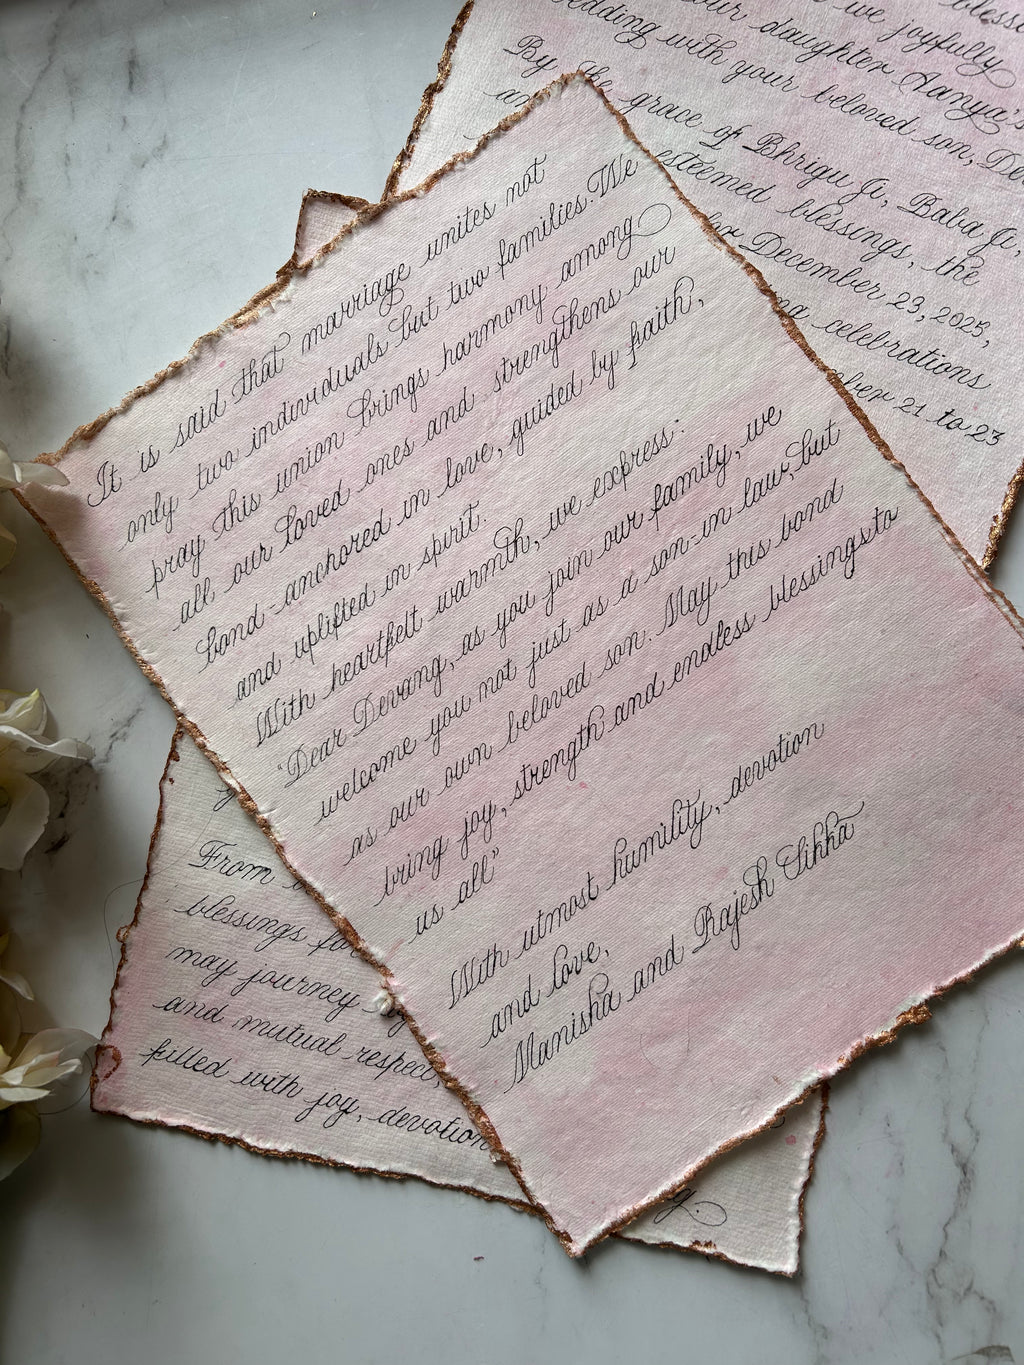 we joyfully
our daughter Tanya's
wedding with your beloved son,
By the grace of Bhrigu Ji, Baba Ji,
esteemed blessings, the
for December 23, 2025,
celebrations
21 to 23
It is said that marriage unites not
only two individuals but two families. We
pray this union brings harmony among
all our loved ones and strengthens our
bond-anchored in love, guided by faith,
and uplifted in spirit.
With heartfelt warmth, we express:
"Dear Devang, as you join our family, we
welcome you not just as a son-in law, but
as our own beloved son. May this bond
bring joy, strength and endless blessings to
us all"
With utmost humility, devotion
and love,
Manisha and Rajesh Sikka
From
blessings for
may journey
and mutual respect,
filled with joy, devotion